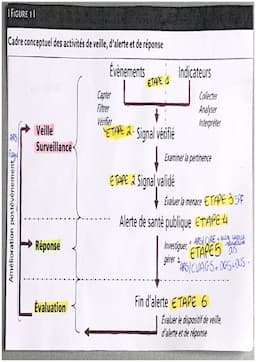 FIGURE 1
Cadre conceptuel des activités de veille, d'alerte et de réponse
Évènements
Indicateurs
ETAPE 1
Capter
Filtrer
Vérifier
Collecter
Analyser
Interpréter
Veille
Surveillance
ETAPE 2 - Signal vérifié
Examiner la pertinence
ETAPE 2 Signal validé
Évaluer la menace ETAPE 3
Alerte de santé publique ETAPE 4
Réponse
Investiguer,
gérer
ETAPE 5
Évaluation
Fin d'alerte ETAPE 6
Évaluer le dispositif de veille,
d'alerte et de réponse
Amélioration postévénement